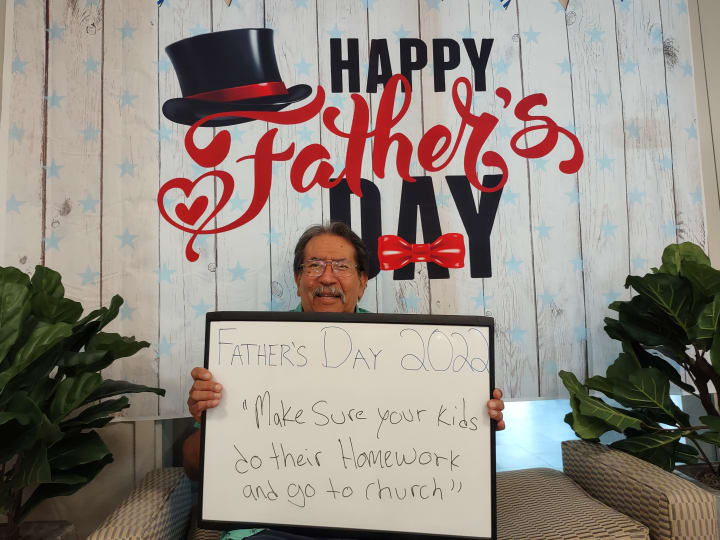 HAPPY
Father's
DAY
FATHER'S DAY 2022
"Make Sure your Kids
do their Homework
and go to church"